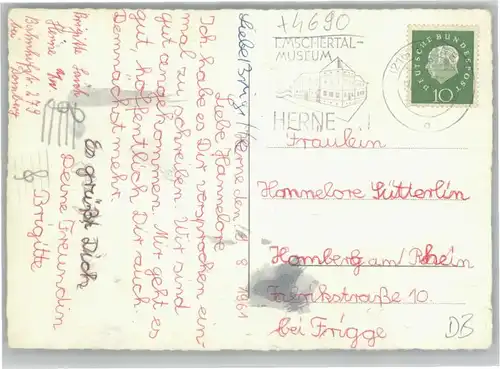 +4690
EMSCHERTAL-
MUSEUM
HERNE
DEUTSCHE BUNDESPOST
10
Fräulein
Hannelore Sütterlin
Homberg am/Rhein
Fabrikstraße 10
bei Frigge
DB
Herne den 1 8 1961
Liebe Hannelore
Ich habe es Dir versprochen ein
mal zu schreiben. Wir sind
gut angekommen. Mir geht es
gut, hoffentlich Dir auch.
Demnächst mehr
Es grüßt Dich
Deine Freundin
Brigitte
Brigitte
Herne